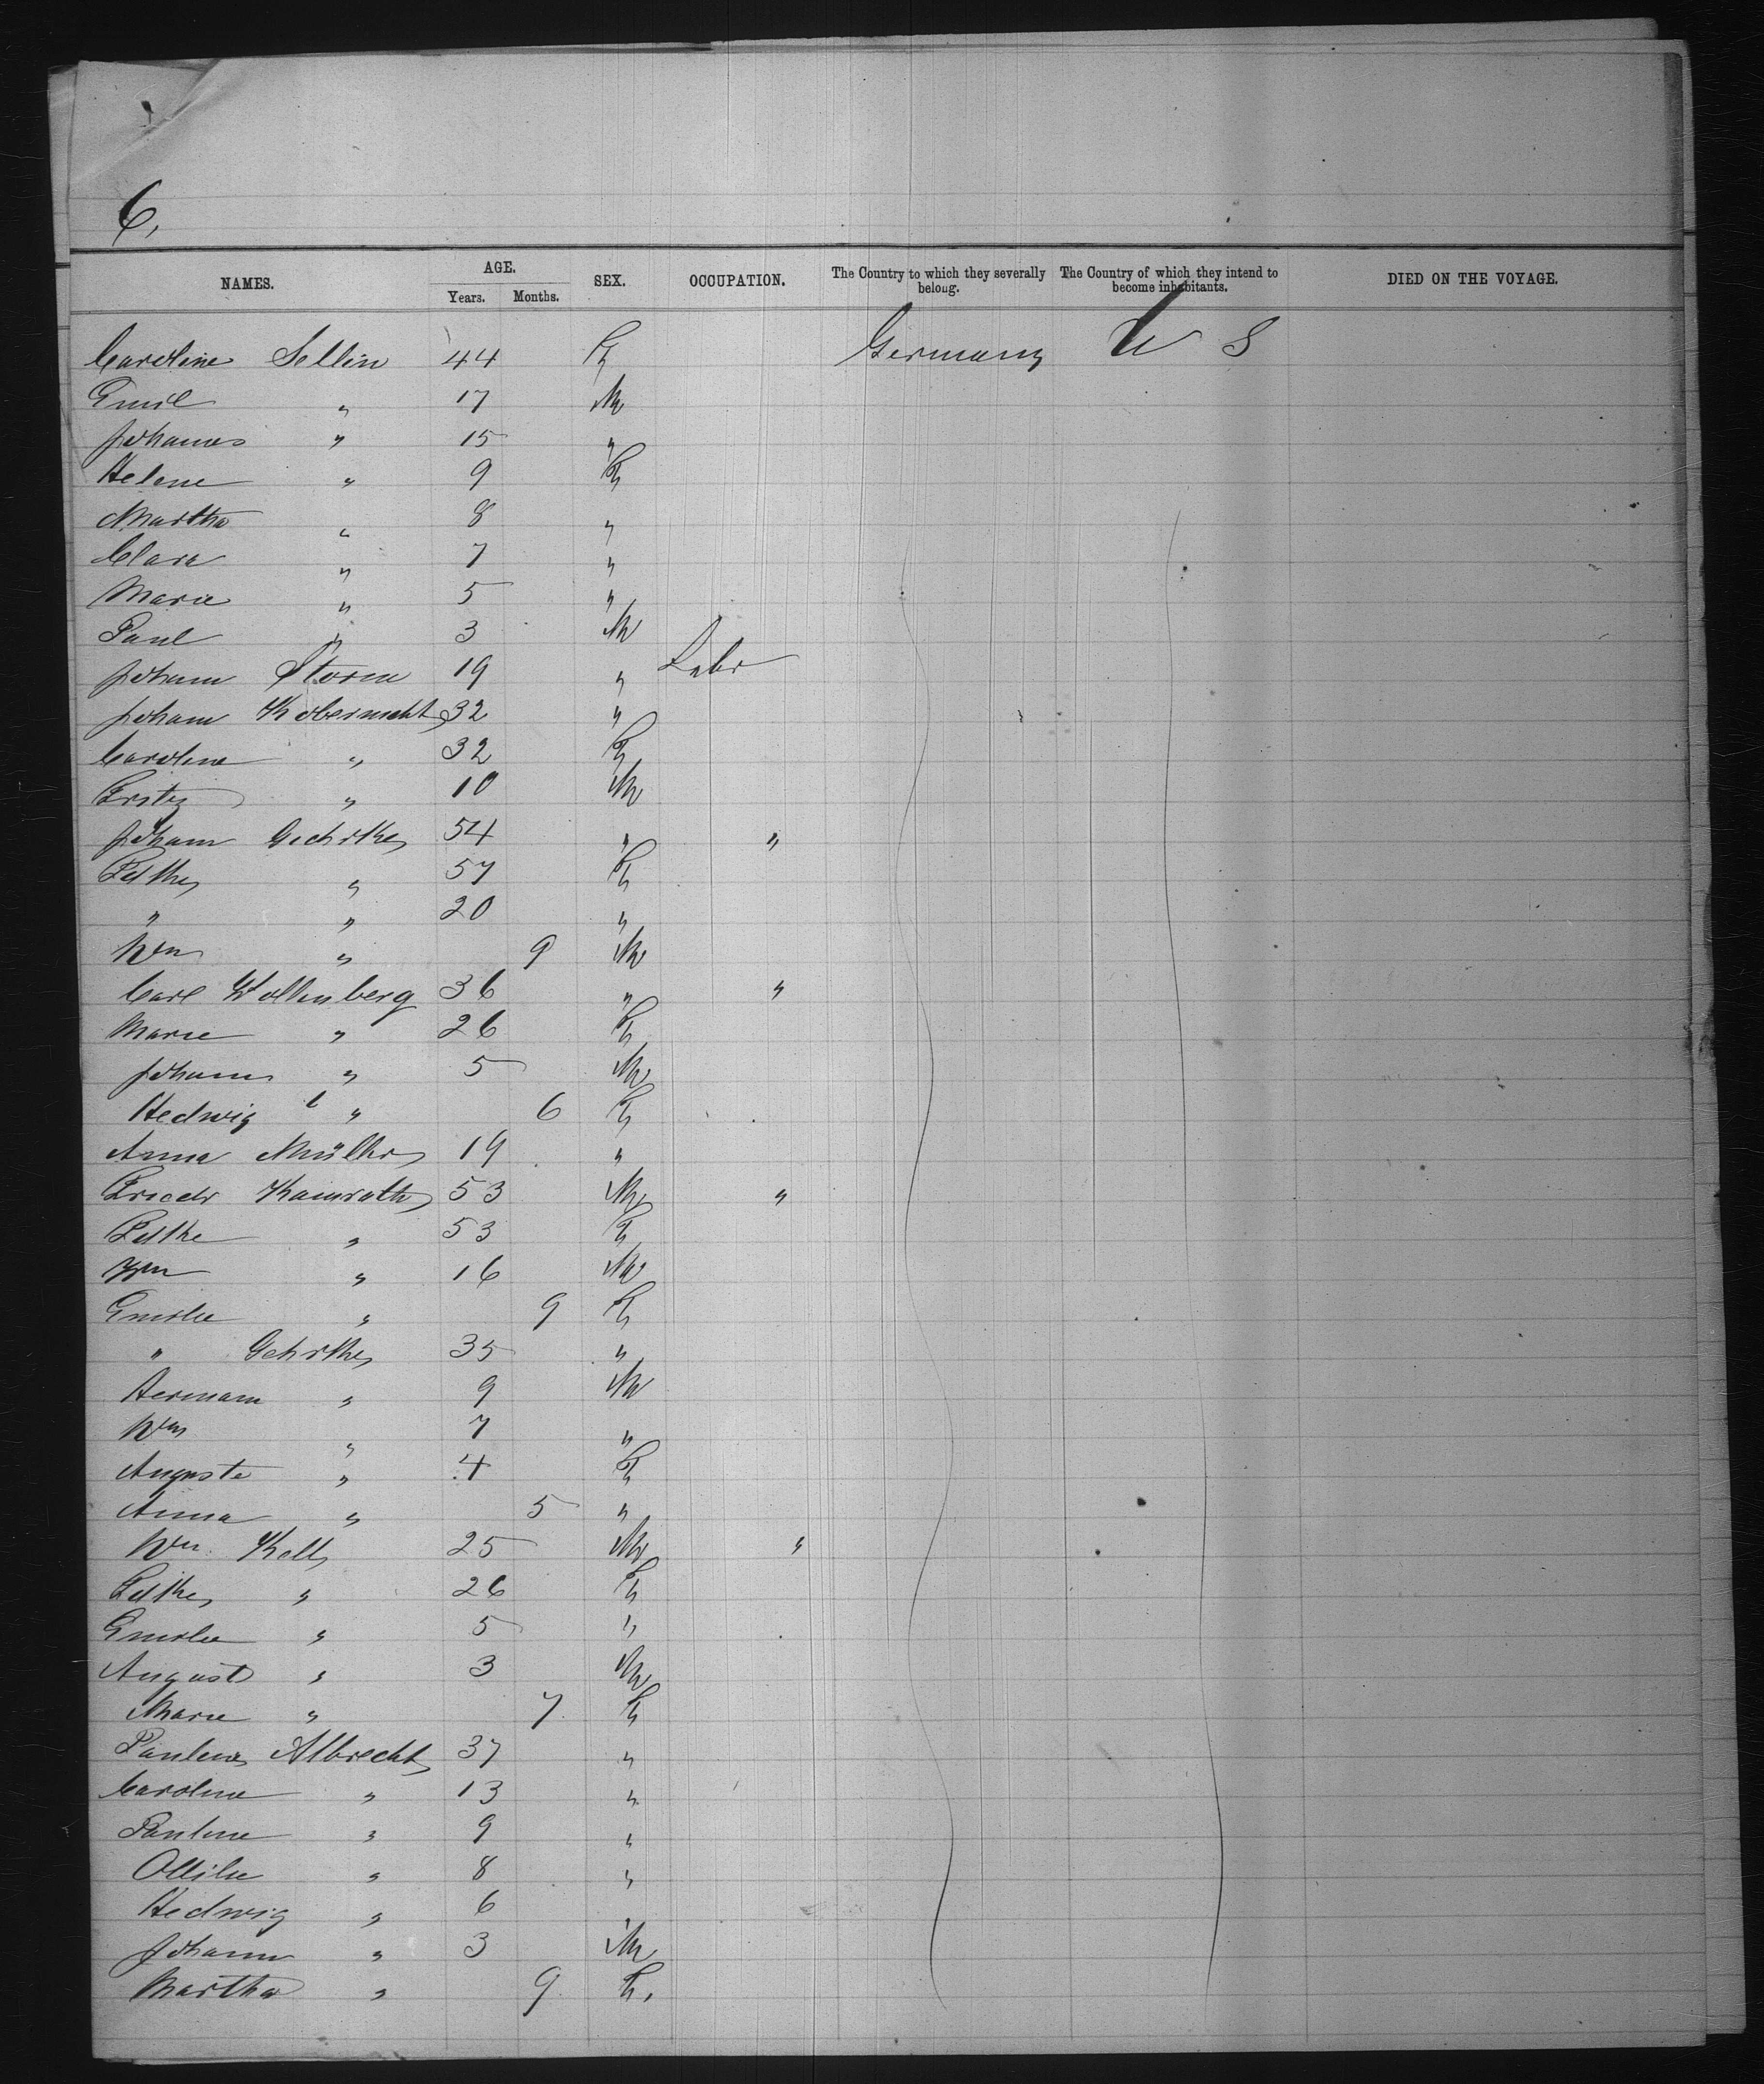 6.
NAMES. AGE. SEX. OCCUPATION. The Country to which they severally belong. The Country of which they intend to become inhabitants. DIED ON THE VOYAGE.
Years. Months.
Caroline Sellin 44 F Germany U S
Emil " 17 M
Johannes " 15 "
Helene " 9 F
Martha " 8 "
Clara " 7 "
Marie " 5 "
Paul " 3 M
Johann Storm 19 " Labr
Johann 32 "
Caroline " 32 F
Fritz " 10 M
Johann Gehrke 54 " "
" 57 F
" " 20 "
Wm " 9 M
Carl Wollenberg 36 " "
Marie " 26 F
Johann " 5 M
Hedwig " 6 F
Anna Müller 19 "
Friedr Kamrath 53 M "
" 53 F
Wm " 16 M
Emilie " 9 F
" Gehrke 35 "
Hermann " 9 M
Wm " 7 "
Auguste " 4 F
Anna " 5 "
Wm Kell 25 M "
" 26 F
Emilie " 5 "
August " 3 M
Marie " 7 F
Pauline Albrecht 37 "
Caroline " 13 "
Pauline " 9 "
Ottilie " 8 "
Hedwig " 6 "
Johann " 3 M
Martha " 9 F.